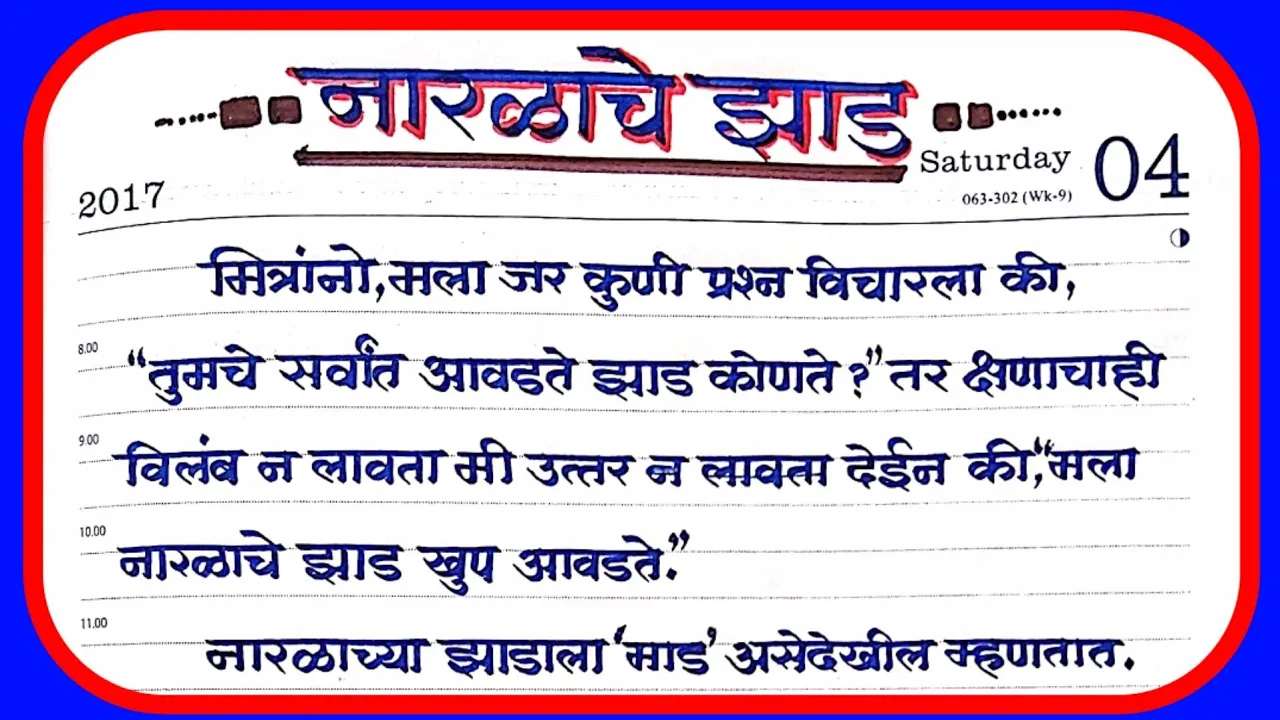 नारळाचे झाड
Saturday 04
2017
063-302 (Wk-9)
मित्रांनो, मला जर कुणी प्रश्न विचारला की,
8.00
“तुमचे सर्वांत आवडते झाड कोणते?” तर क्षणाचाही
9.00
विलंब न लावता मी उत्तर न लावता देईन की,“मला
10.00
नारळाचे झाड खुप आवडते.”
11.00
नारळाच्या झाडाला ‘माड’ असेदेखील म्हणतात.